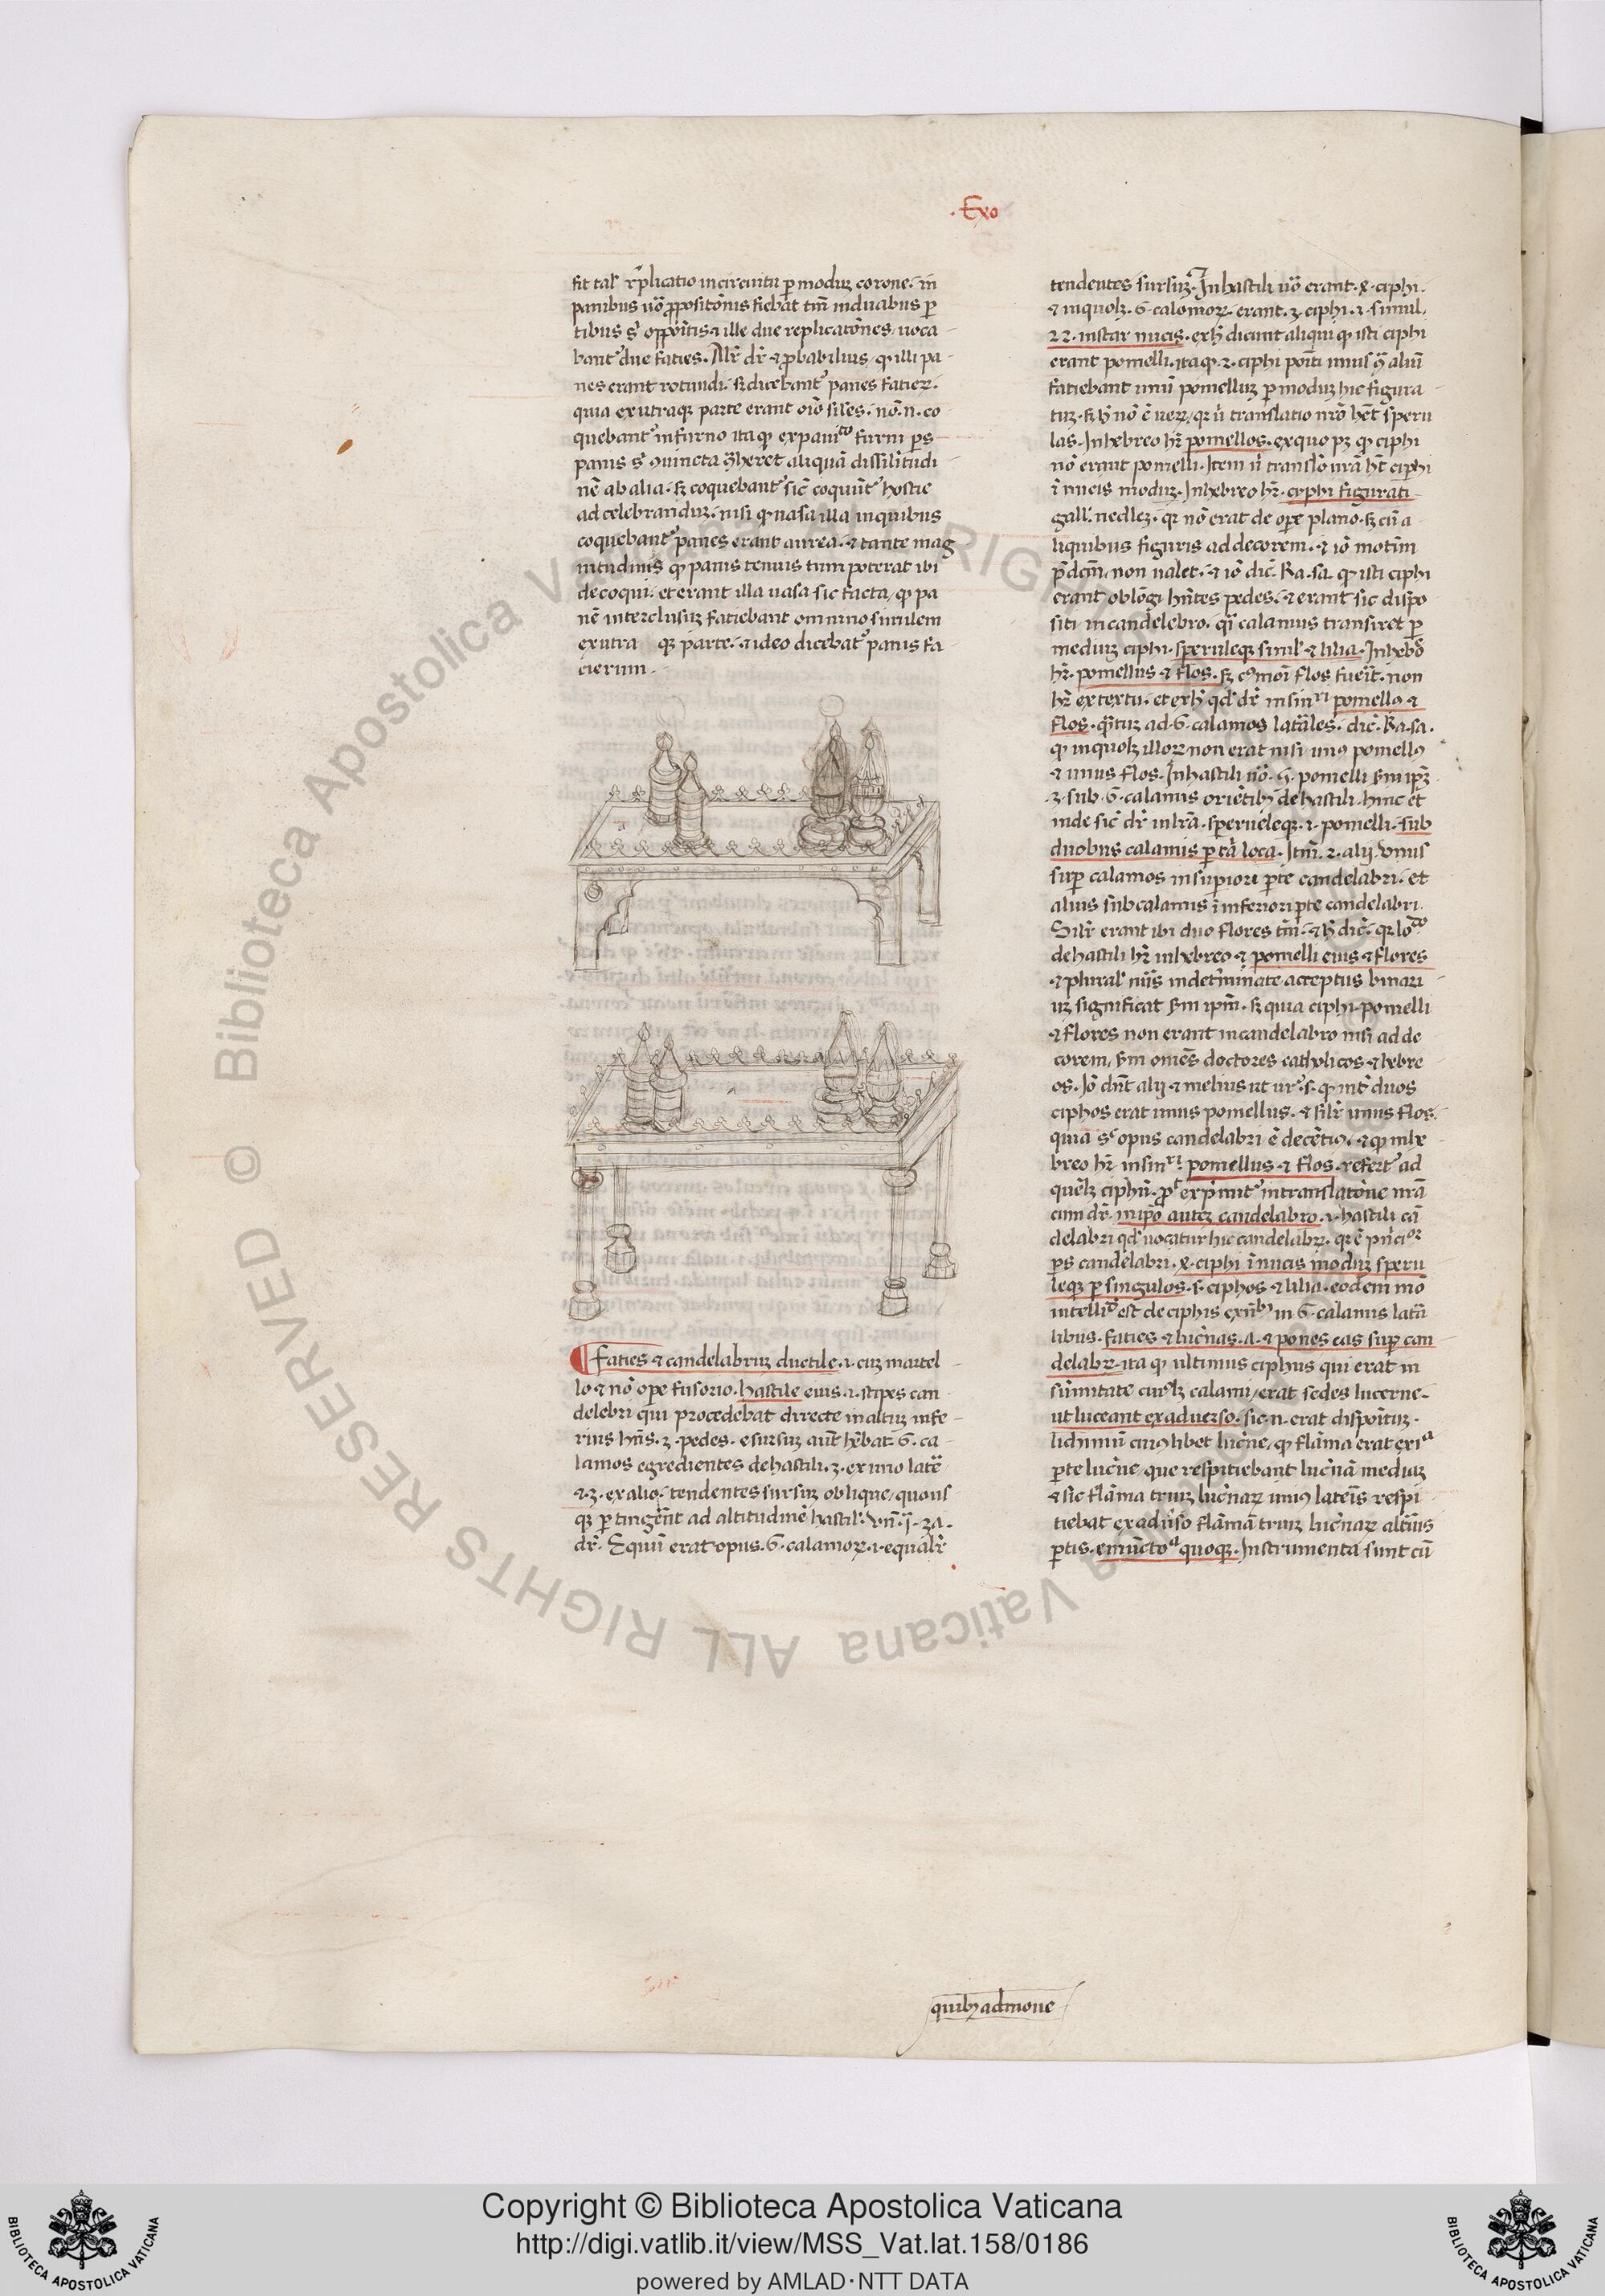 · Exo
fit tal' rplicatio incircuitu p moduz corone. in
panibus uo propositonis fiebat tm induabus p
tibus s' oppoitis. et ille due replicatones uoca
bant due faties. Alr dr et probabilius, q illi pa
nes erant rotundi. sz dicebant panes fatiez.
quia exutraqz parte erant oio siles. no. n. co
quebant infurno ita q expanico furni ps
panis s' coniuncta heret aliqua dissilitudi
ne ab alia. sz coquebant sic coquut hostie
ad celebranduz. nisi q uasa illa inquibus
coquebant panes erant aurea. et tante mag
nitudinis q panis tenuis tum poterat ibi
decoqui. et erant illa uasa sic facta, q pa
ne interclusuz fatiebant omnino similem
exutra qz parte. et ideo dicebat panis fa
cierum.
Faties et candelabruz ductile. i. cuz martel
lo et no ope fusorio. hastile eius. i. stipes can
delebri qui procedebat directe inaltuz infe
rius hns. 3. pedes. esursuz aut hebat. 6. ca
lamos egredientes dehastili. 3. ex uno late
et. 3. ex alio. tendentes sursuz oblique, quous
qz ptingent ad altitudine hastil'. vn. ij. 3a.
dr. Equu erat opus. 6. calamoz. i. equalr
tendentes sursuz. Inhastili uo erant. 4. ciphi.
et inquolz. 6. calomoz. erant. 3. ciphi. i. simul.
22. instar nucis. exh dicunt aliqui q isti ciphi
erant pomelli. ita q. 2. ciphi poiti unus alii
fatiebant unu pomelluz p moduz hic figura
tuz. sz h no e uez, qz u translatio nro het speru
las. Inhebreo hr pomellos. exquo pz q ciphi
no erant pomelli. Item u translo nra ht ciphi
i nucis moduz. Inhebreo hr. ciphi figurati
gall'. nedlez. qz no erat de ope plano. sz cu a
liquibus figuris addecorem. et io motim
pdcm, non ualet. et io dic. Ra. sa. q isti ciphi
erant oblogi hntes pedes. et erant sic dispo
siti incandelebro. qi calamus transiret p
meduiz ciphi. speruleqz simul et lilia. Inhebo
hr. pomellus et flos. sz quomoi flos fueit. non
hr extextu. et exh qd dr insinri pomello et
flos. qtuz ad. 6. calamos latales. dic. Ra. sa.
q inquolz illoz non erat nisi unus pomellus
et unus flos. Inhastili uo. 5. pomelli smipz
3. sub. 6. calamis orietibz dehastili. hinc et
inde sic dr inlra. speruleqz. i. pomelli. sub
duobus calamis p ta loca. Itm. 2. alij. Unus
sup calamos insupiori pte candelabri. et
alius subcalamis i inferiori pte candelabri.
Silr erant ibi duo flores tm. et h dic. qz loco
dehastili hr inhebreo et pomelli eius et flores
et plural' nus indetminate acceptus binari
uz significat sm ipm. sz quia ciphi pomelli
et flores non erant incandelabro nisi adde
corem, sm omes doctores catholicos et hebre
os. Io dnt alij et melius ut ur. s. q int duos
ciphos erat unus pomellus. et silr unus flos.
quia s' opus candelabri e decetius. et q inhe
breo hr insinri. pomellus et flos. refert ad
quelz ciphu. p expmit intranslatone nra
cum dr. inipo autez candelabro. i. hastili ca
delabri qd uocatur hic candelabz. qz e pncior
ps candelabri. 4. ciphi i nucis moduz speru
leqz p singulos. s. ciphos et lilia. eodem mo
intelligo est de ciphis exntibz in 6. calamis lata
libus. faties et lucnas. 7. et pones eas sup can
delabz. ita q ultimus ciphus qui erat in
sumitate cuiuslz calami, erat sedes lucerne.
ut luceant exaduerso. sic. n. erat dispoituz.
lichiniu cuiuslibet lucne, q flama erat exia
pte lucne, que respitiebant lucna meduiz
et sic flama triuz lucnaz unius lateis respi
tiebat exaduso flama triuz lucnaz altius
ptis. emuctoa quoqz. Instrumenta sunt cu
quibz admone
© Biblioteca Apostolica Vaticana ALL RIGHTS RESERVED
Copyright © Biblioteca Apostolica Vaticana
http://digi.vatlib.it/view/MSS_Vat.lat.158/0186
powered by AMLAD·NTT DATA
BIBLIOTECA APOSTOLICA VATICANA
BIBLIOTECA APOSTOLICA VATICANA